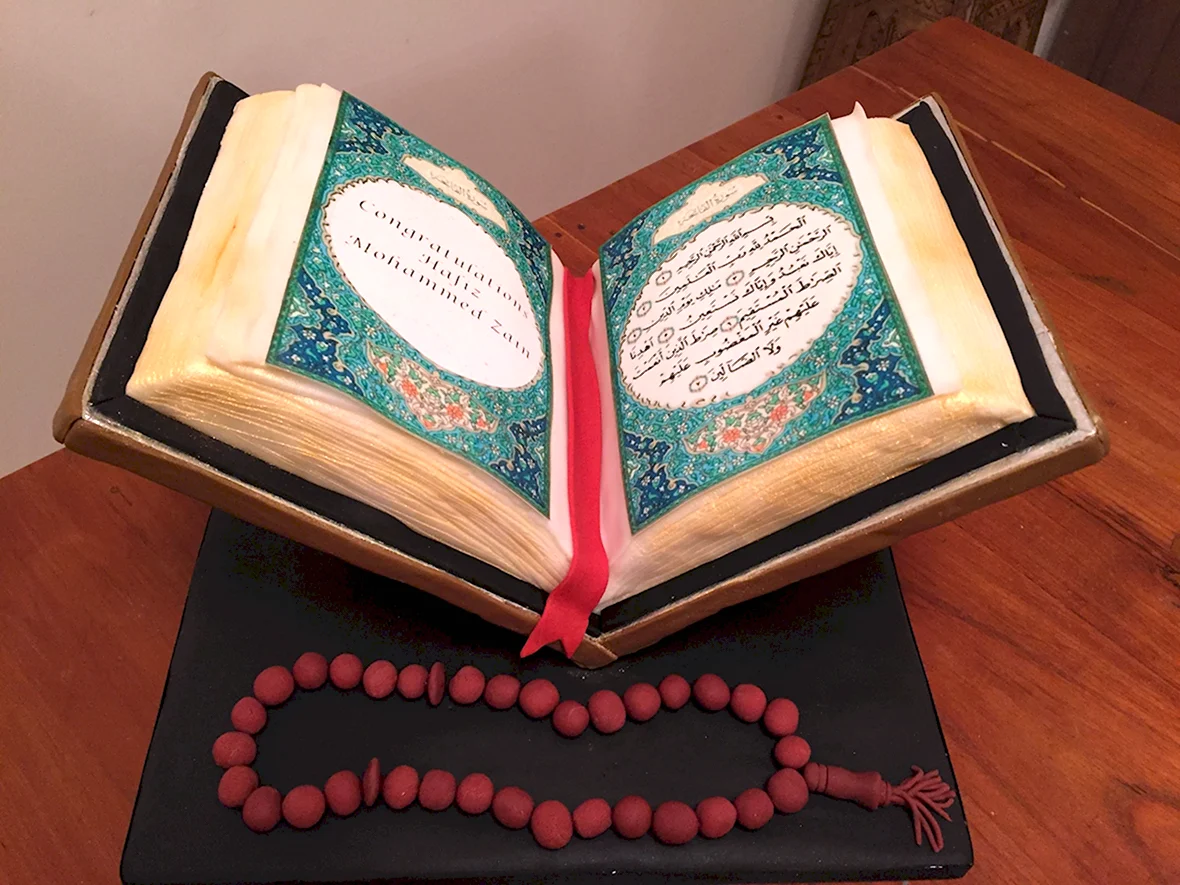 سُورَةُ الفَاتِحَة
Congratulations
Hafiz
Mohammed Zain
سُورَةُ الفَاتِحَة
بِسْمِ ٱللَّهِ ٱلرَّحْمَٰنِ ٱلرَّحِيمِ
ٱلْحَمْدُ لِلَّهِ رَبِّ ٱلْعَٰلَمِينَ
ٱلرَّحْمَٰنِ ٱلرَّحِيمِ مَٰلِكِ يَوْمِ ٱلدِّينِ
إِيَّاكَ نَعْبُدُ وَإِيَّاكَ نَسْتَعِينُ ٱهْدِنَا
ٱلصِّرَٰطَ ٱلْمُسْتَقِيمَ صِرَٰطَ ٱلَّذِينَ أَنْعَمْتَ
عَلَيْهِمْ غَيْرِ ٱلْمَغْضُوبِ عَلَيْهِمْ
وَلَا ٱلضَّآلِّينَ